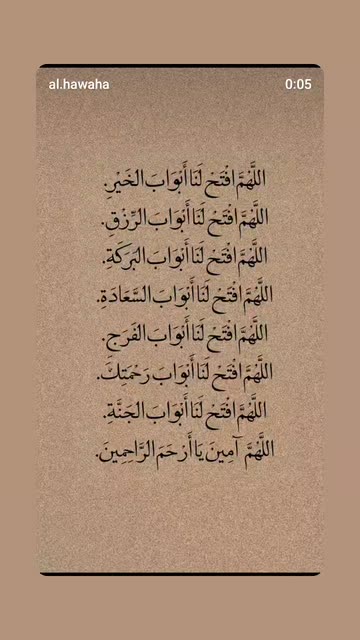 al.hawaha
0:05
اللَّهُمَّ افْتَحْ لَنَا أَبْوَابَ الخَيْرِ.
اللَّهُمَّ افْتَحْ لَنَا أَبْوَابَ الرِّزْقِ.
اللَّهُمَّ افْتَحْ لَنَا أَبْوَابَ البَرَكَةِ.
اللَّهُمَّ افْتَحْ لَنَا أَبْوَابَ السَّعَادَةِ.
اللَّهُمَّ افْتَحْ لَنَا أَبْوَابَ الفَرَجِ.
اللَّهُمَّ افْتَحْ لَنَا أَبْوَابَ رَحْمَتِكَ.
اللَّهُمَّ افْتَحْ لَنَا أَبْوَابَ الجَنَّةِ.
اللَّهُمَّ آمِينَ يَا أَرْحَمَ الرَّاحِمِينَ.